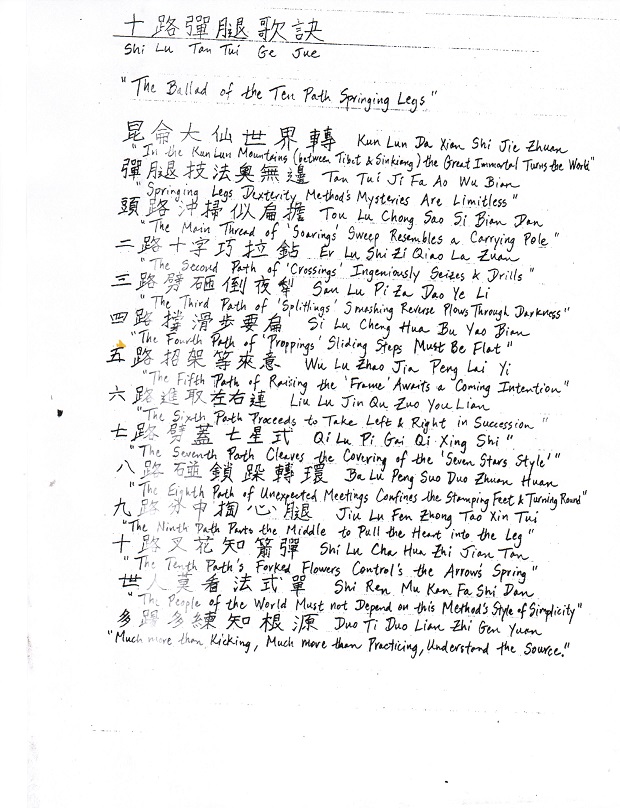 十路彈腿歌訣
Shi Lu Tan Tui Ge Jue
"The Ballad of the Ten Path Springing Legs"
昆侖大仙世界轉 Kun Lun Da Xian Shi Jie Zhuan
"In the Kun Lun Mountains (between Tibet & Sinkiang) the Great Immortal Turns the World"
彈腿技法奧無邊 Tan Tui Ji Fa Ao Wu Bian
"Springing Legs Dexterity Method's Mysteries Are Limitless"
頭路沖掃似扁擔 Tou Lu Chong Sao Si Bian Dan
"The Main Thread of 'Soarings' Sweep Resembles a Carrying Pole"
二路十字巧拉鉆 Er Lu Shi Zi Qiao La Zuan
"The Second Path of 'Crossings' Ingeniously Seizes & Drills"
三路劈砸倒夜犁 San Lu Pi Za Dao Ye Li
"The Third Path of 'Splitlings' Smashing Reverse Plows Through Darkness"
四路撐滑步要扁 Si Lu Cheng Hua Bu Yao Bian
"The Fourth Path of 'Proppings' Sliding Steps Must Be Flat"
五路招架等來意 Wu Lu Zhao Jia Peng Lai Yi
"The Fifth Path of Raising the 'Frame' Awaits a 'Coming Intention"
六路進取左右連 Liu Lu Jin Qu Zuo You Lian
"The Sixth Path Proceeds to Take Left & Right in Succession"
七路劈蓋七星式 Qi Lu Pi Gai Qi Xing Shi"
"The Seventh Path Cleaves the Covering of the 'Seven Stars Style'"
八路碰鎖跺轉環 Ba Lu Peng Suo Duo Zhuan Huan
"The Eighth Path of Unexpected Meetings Confines the Stamping Feet & Turning Round"
九路分中掏心腿 Jiu Lu Fen Zhong Tao Xin Tui
"The Ninth Path Parts the Middle to Pull the Heart into the Leg"
十路叉花知箭彈 Shi Lu Cha Hua Zhi Jian Tan
"The Tenth Path's Forked Flowers Control's the Arrow's Spring"
世人莫看法式單 Shi Ren Mu Kan Fa Shi Dan
"The People of the World Must not Depend on this Method's Style of Simplicity"
多踢多練知根源 Duo Ti Duo Lian Zhi Gen Yuan
"Much more than Kicking, Much more than Practicing, Understand the Source."